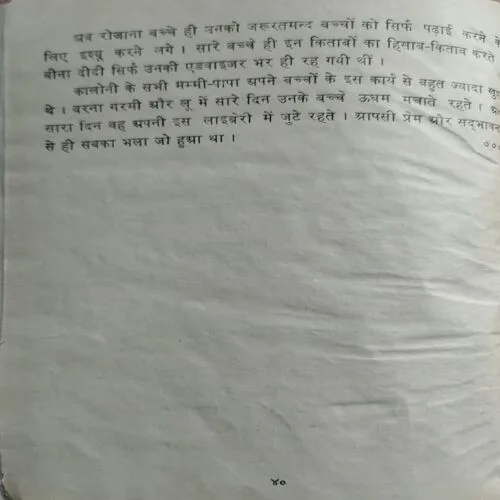 अब रोजाना बच्चे ही उनको जरूरतमन्द बच्चों को सिर्फ पढ़ाई करने के
लिए इश्यू करने लगे । सारे बच्चे ही इन किताबों का हिसाब-किताब करते
बीना दीदी सिर्फ उनकी एडवाइजर भर ही रह गयी थीं ।
कालोनी के सभी मम्मी-पापा अपने बच्चों के इस कार्य से बहुत ज्यादा
थे । वरना गरमी और लू में सारे दिन उनके बच्चे ऊधम मचाते रहते ।
सारा दिन वह अपनी इस लाइब्रेरी में जुटे रहते । आपसी प्रेम और
से ही सबका भला जो हुआ था ।
४०